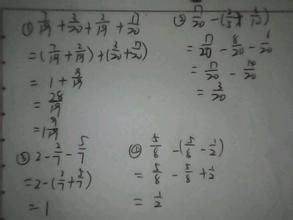 ① 7/19 + 3/20 + 2/19 + 17/20
= (7/19 + 2/19) + (3/20 + 17/20)
= 1 + 9/19
= 28/19
= 1 9/19
② 17/20 - (2/5 +
= 17/20 - 8/20 - 1/20
= 17/20 - 10/20
= 3/20
③ 2 - 2/7 - 5/7
= 2 - (2/7 + 5/7)
= 1
④ 5/8 - (5/8 - 1/2)
= 5/8 - 5/8 + 1/2
= 1/2